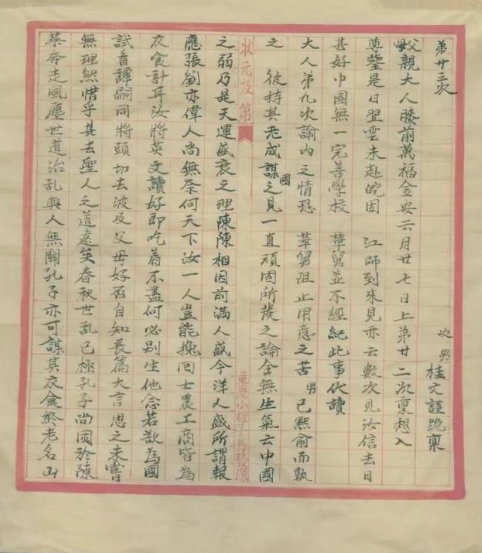 第廿三次
次男 桂文謹跪稟
父親大人膝前萬福金安六月廿七日上第廿二次稟想入
英鑒是日習雲未赴皖因 江師到來見亦云數次見汝信去日
甚好中國無一完善學校 華舅並不經紀此事伏讀
大人第九次諭內之情恐 華舅阻止用意之苦男已默俞而執
之 彼持其老成謀國之見一直頑固所發之論全無生氣云中國
之弱乃是天運盛衰之理陳陳相因前滿人盛今洋人盛所謂報
應張劉亦偉人尚無奈何天下汝一人豈能挽回士農工商皆為
衣食計耳汝將英文讀好即吃着不盡何必別生他念若欲為國
試看譚嗣同將頭切去波及父母好否自知長篇大言思之未嘗
無理然惜乎其去聖人之道遠矣春秋世亂已極孔子尚困於陳
蔡奔走風塵世道治亂與人無關孔子亦可謀其衣食終老名山
狀元及第